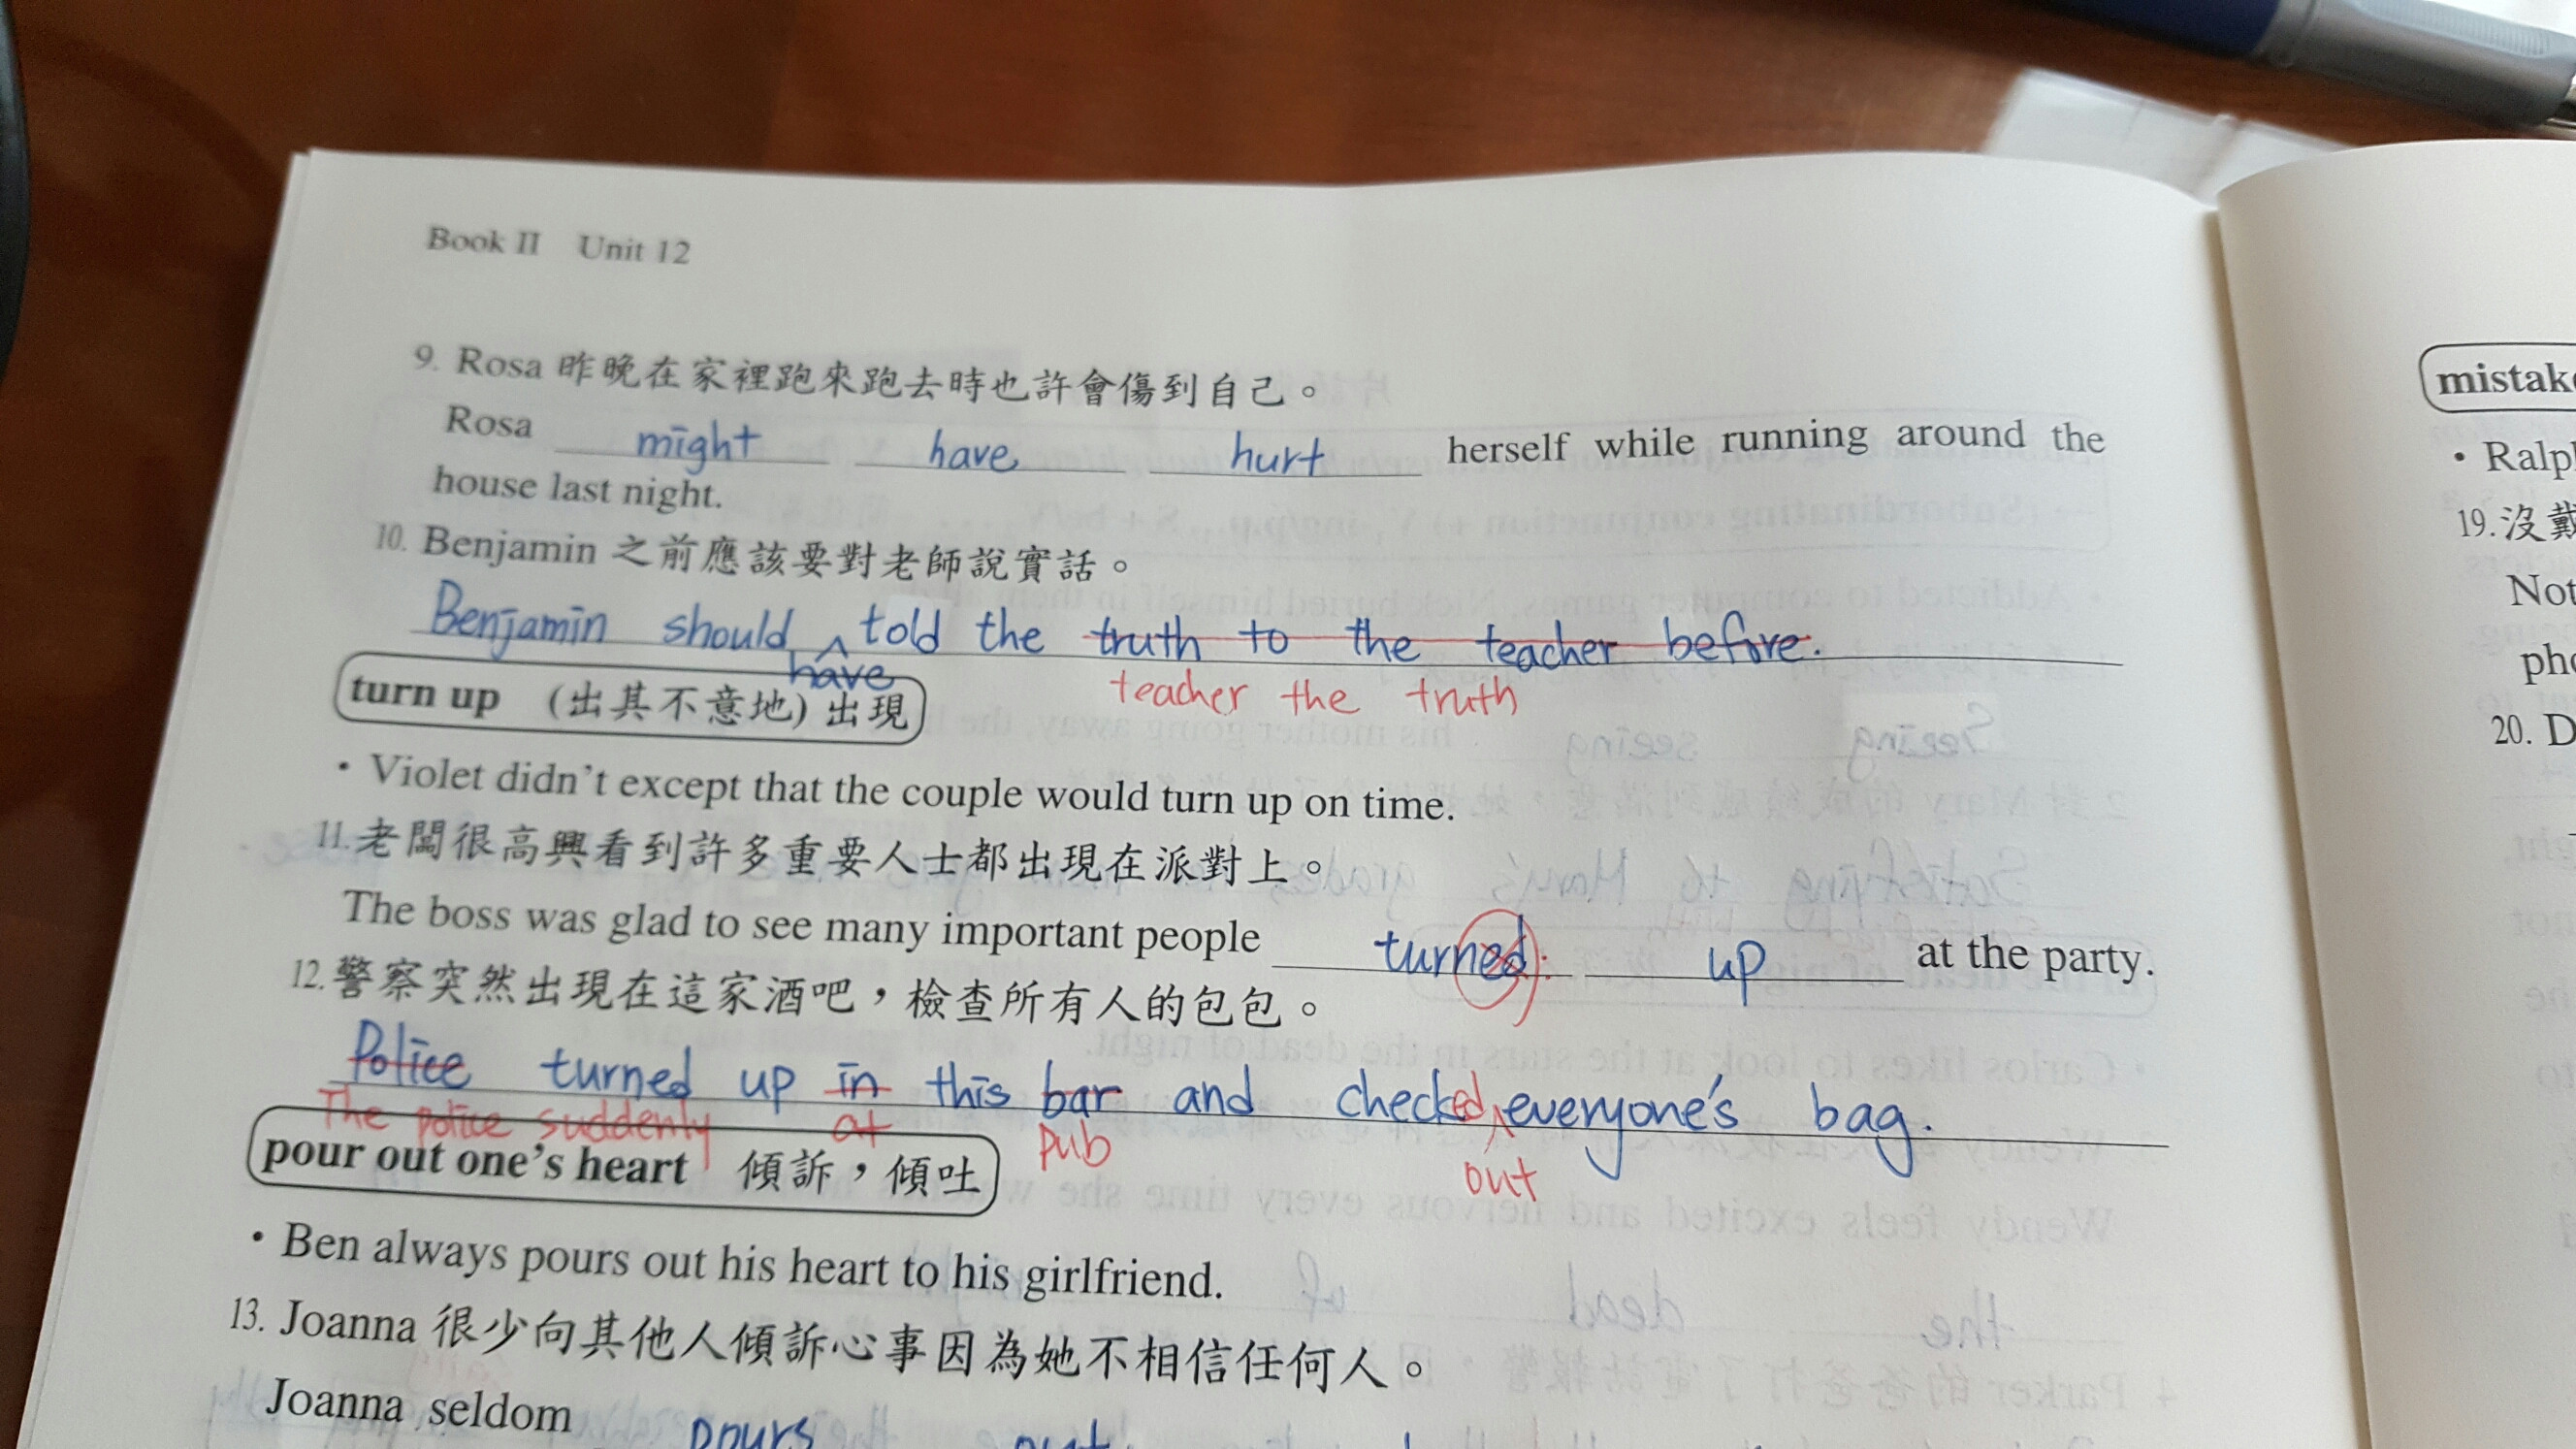 Book II Unit 12
9. Rosa 昨晚在家裡跑來跑去時也許會傷到自己。
Rosa might have hurt herself while running around the
house last night.
10. Benjamin 之前應該要對老師說實話。
Benjamin should told the truth to the teacher before.
have
teacher the truth
turn up (出其不意地) 出現
• Violet didn't except that the couple would turn up on time.
11. 老闆很高興看到許多重要人士都出現在派對上。
The boss was glad to see many important people turned up at the party.
12. 警察突然出現在這家酒吧，檢查所有人的包包。
Police turned up in this bar and checked everyone's bag.
The police suddenly at pub out
pour out one's heart 傾訴，傾吐
• Ben always pours out his heart to his girlfriend.
13. Joanna 很少向其他人傾訴心事因為她不相信任何人。
Joanna seldom pours out
• Ralp
19. 沒戴
Not
20. D